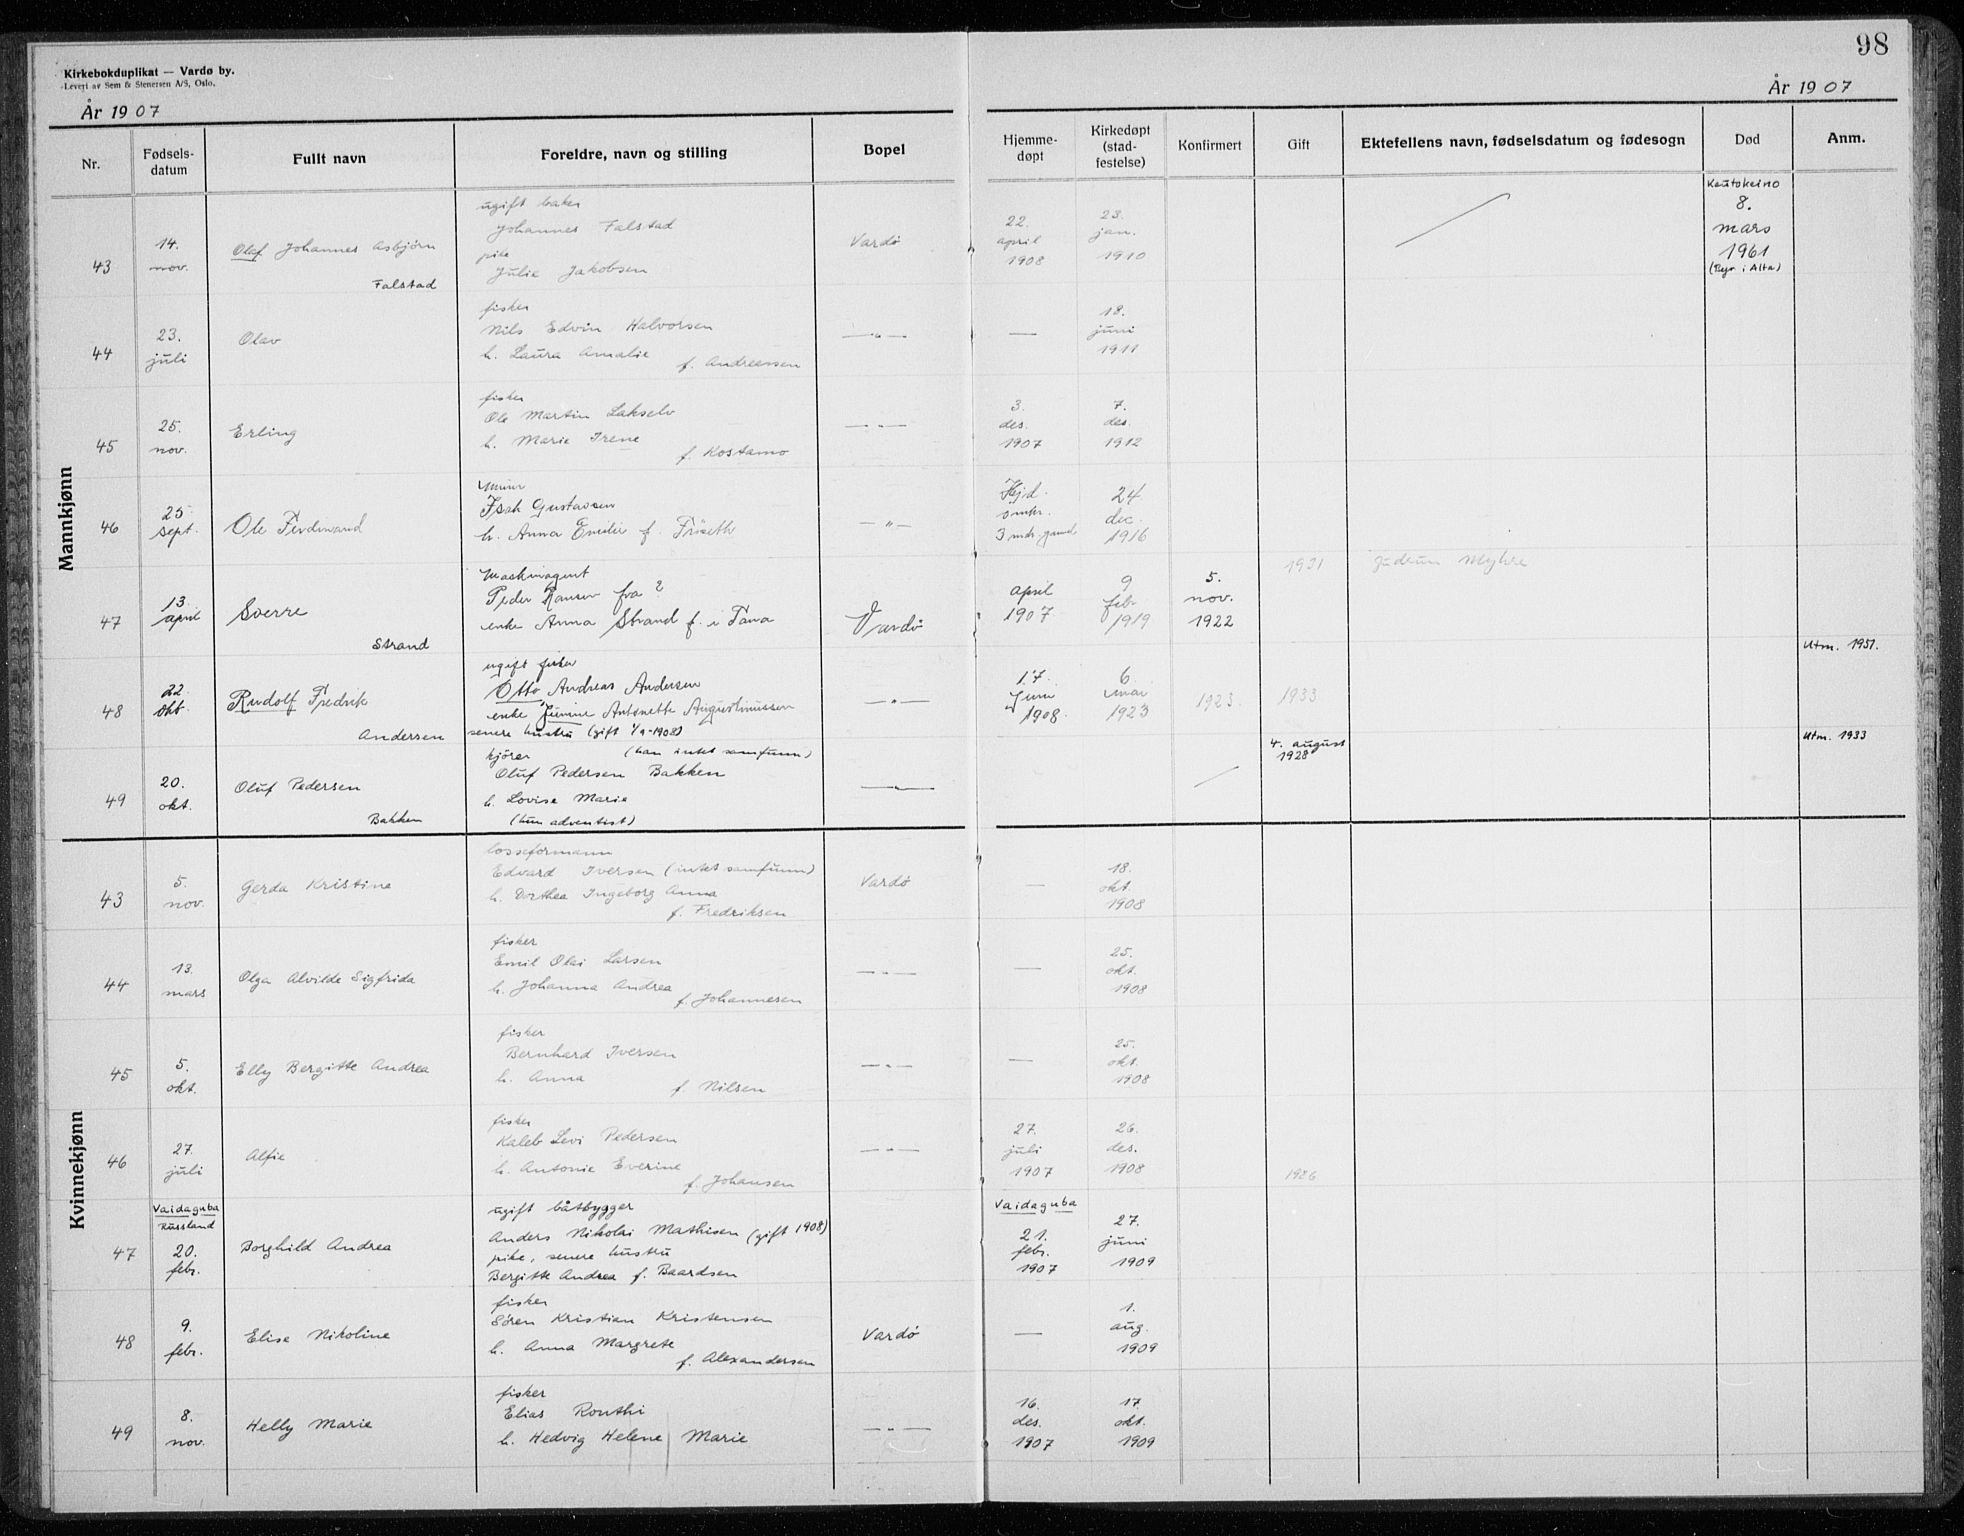 98
Kirkebokduplikat — Vardø by.
Levert av Sem & Stenersen A/S, Oslo.
År 1907
År 1907
Nr.
Fødsels-
datum
Fullt navn
Foreldre, navn og stilling
Bopel
Hjemme-
døpt
Kirkedøpt
(stad-
festelse)
Konfirmert
Gift
Ektefellens navn, fødselsdatum og fødesogn
Død
Anm.
Mannkjønn
43
14.
nov.
Olaf Johannes Asbjørn
Falstad
ugift baker
Johannes Falstad
pike
Julie Jakobsen
Vardø
22.
april
1908
23.
jan.
1910
Kautokeino
8.
mars
1961
(Byr. i Alta)
44
23.
juli
Olav
fisker
Nils Edvin Halvorsen
h. Laura Amalie
f. Andreassen
—"—
—
18.
juni
1911
45
25.
nov.
Erling
fisker
Ole Martin Lakselv
h. Marie Irene
f. Kostamo
—"—
3.
des.
1907
7.
des.
1912
46
25
sept.
Ole Ferdinand
Isak Gustavsen
h. Anna Emilie f. Fröseth
—"—
Hjd.
omkr.
3 mdr. gaml
24
dec.
1916
47
13
april
Sverre
Strand
Maskinagent
Peder Hansen fra ?
enke Anna Strand f. i Tana
Vardø
april
1907
9
febr
1919
5.
nov.
1922
1931
Gudrun Myhre
48
22.
Okt.
Rudolf Fredrik
Andersen
ugift fisker
Otto Andreas Andersen
enke Junine Antonette Augustinussen
senere hustru (gift 1/9-1908)
—"—
17.
Juni
1908.
6.
mai
1923
1923
1933
Utm. 1951.
49
20.
okt.
Oluf Pedersen
Bakken
kjører (han intet samfunn)
Oluf Pedersen Bakken
h. Lovise Marie
(hun adventist)
—"—
4. august
1928
Utm. 1933
Kvinnekjønn
43
5.
nov.
Gerda Kristine
losseformann
Edvard Iversen (intet samfunn)
h. Dorthea Ingeborg Anna
f. Fredriksen
Vardø
—
18.
okt.
1908
44
13.
mars
Olga Alvilde Sigfrida
fisker
Emil Olai Larsen
h. Johanna Andrea
f. Johannesen
—"—
—
25.
okt.
1908
45
5.
okt.
Elly Bergitte Andrea
fisker
Bernhard Iversen
h. Anna
f. Nilsen
—"—
—
25.
okt.
1908
46
27.
juli
Alfie
fisker
Kaleb Levi Pedersen
h. Antonie Everine
f. Johansen
—"—
27.
juli
1907
26.
des.
1908
1926
47
Vaidaguba
Russland
20.
febr.
Borghild Andrea
ugift båtbygger
Anders Nikolai Mathisen (gift 1908)
pike, senere hustru
Bergitte Andrea f. Baardsen
Vaidaguba
21.
febr.
1907
27.
juni
1909
48
9.
febr.
Elise Nikoline
fisker
Sören Kristian Kristensen
h. Anna Margrete
f. Alexandersen
Vardø
—
1.
aug.
1909
49
8.
nov.
Helly Marie
fisker
Elias Routhi
h. Hedvig Helene Marie
—"—
16.
des.
1907
17.
okt.
1909